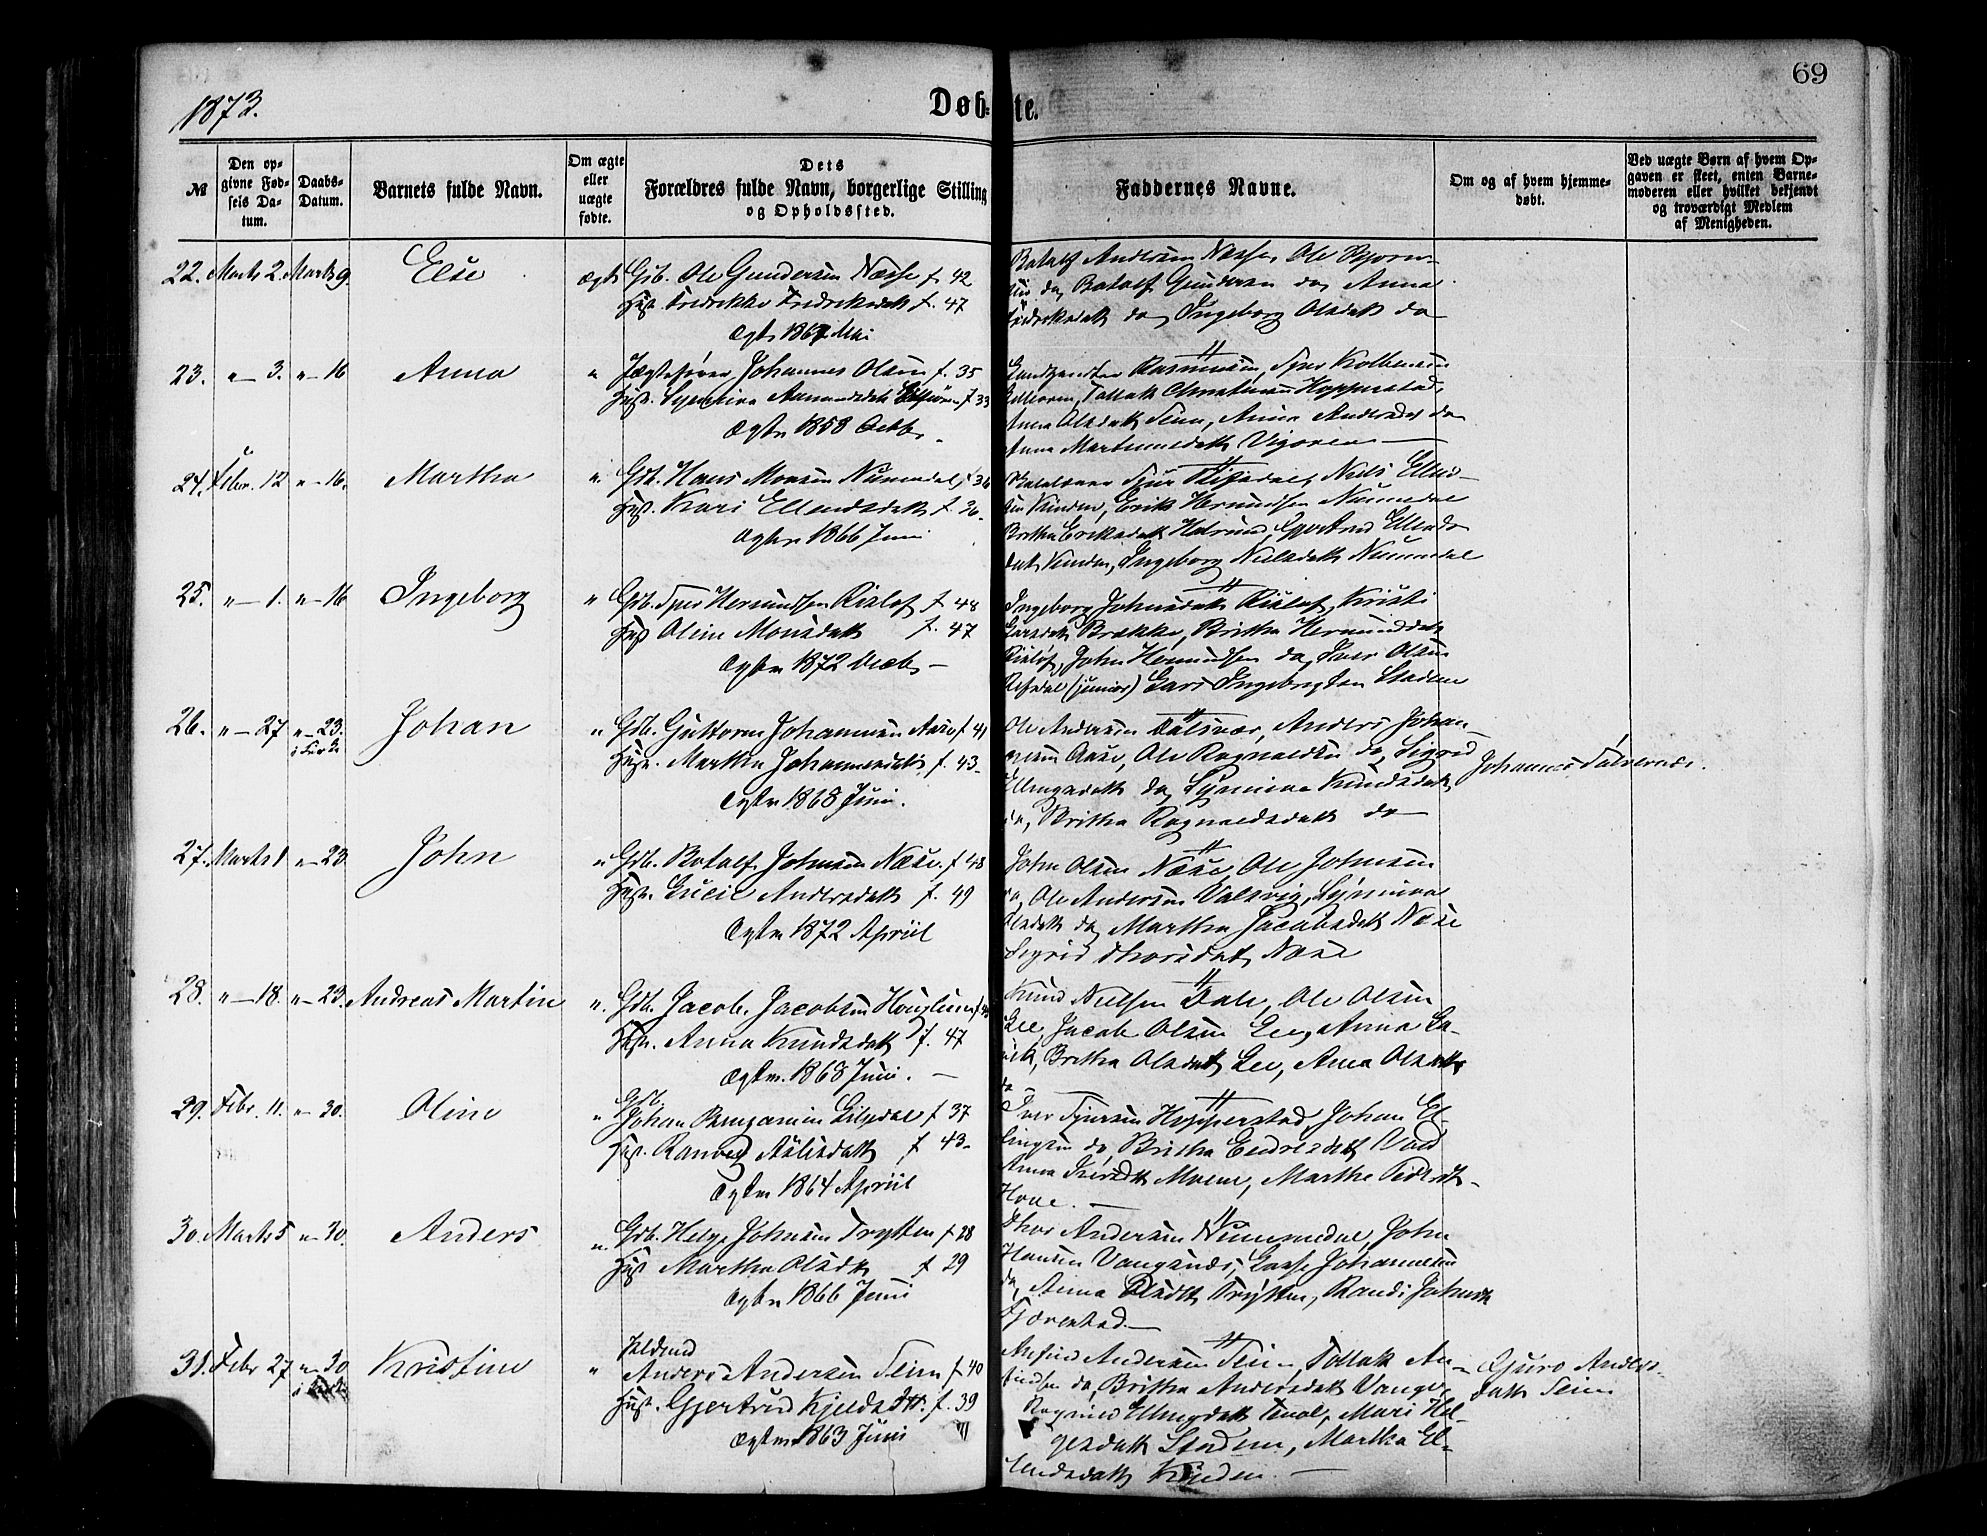 1873.
Døb-
te.
69
№
Den op-
givne Fød-
sels Da-
tum.
Daabs-
Datum.
Barnets fulde Navn.
Om ægte
eller
uægte
fødte.
Dets
Forældres fulde Navn, borgerlige Stilling
og Opholdssted.
Faddernes Navne.
Om og af hvem hjemme-
døbt.
Ved uægte Børn af hvem Op-
gaven er skeet, enten Barne-
moderen eller hvilket bekjendt
og troværdigt Medlem
af Menigheden.
22. Marts 2. Marts 9. Else ægte Gdb. Ole Gundersen Næsse f. 42
Hust. Fredrikke Fredriksdatt f. 47
Ægtv. 1867 Mai
Batalf Andersen Næsse, Ole Bjørn-
do, Batalf Gundersen do, Anna
Fredriksdatt do, Ingeborg Olsdatt do
23. " 3. " 16 Anna " Jægtefører Johannes Olsen f. 35
Hust. Synneva Aamundsdatt f 33
Ægtv. 1858 Octbr.
Rasmussen, Iver Kolbensen
Tollak Hopperstad,
Anna Olsdatt Seim, Anna Andersdtr do
Anna Martinusdatt Vigøren
24. Febr. 12 " 16. Martha " Gdb. Hans Monsen Nummedal f 36
Hust. Kari Ellendsdatt f. 36.
Ægtv. 1866 Juni
Sjur Refsdal, Niels Ellend-
sen Kinden, Erik Hermundsen Nummedal
Britha Eriksdatt Gjertrud Ellends-
datt Kinden, Ingeborg Nielsdatt Nummedal
25. " 1. " 16 Ingeborg " Gdb. Iver Hermundsen Risløf f. 48
Hust Oline Monsdatt f. 47
Ægtv. 1872 Decbr
Ingeborg Johnsdatt Risløf, Kristi
Larsdatt Brække, Britha Hermundsdatt
Risløf, John Hermundsen do, Iver Olsen
Refsdal (junior) Lars Ingebrigtsen Stadem
26. " 27 " 23. Johan " Gdb. Guttorm Johannesen Aase f 41
i Kirke
Hust. Martha Johannesdatt f. 43.
Ægtv. 1868 Juni.
Ole Andersen Anders Johan-
nesen Aase, Ole Ragnvaldsen do, Sigrid
Ellingsdatt do, Synneva Knudsdatt
do, Britha Ragnvaldsdatt do
Johannes
27. Marts 1 " 23. John " Gdb. Batalf Johnsen Næse. f 48
Hust. Gucie Andersdatt f. 49
Ægtv. 1872 Apriil
John Olsen Næse, Ole Johnsen
do, Ole Andersen Valsvig, Synneva
Olsdatt do, Martha Jacobsdatt Næse
Sigrid Thorsdatt Næse
28. " 18. " 23. Andreas Martin " Gdb. Jacob Jacobsen
Hust. Anna Knudsdatt f. 47
Ægtv. 1868 Juni.
Knud Nielsen Dale, Ole Olsen
Lee, Jacob Olsen Lee, Anna La-
Britha Olsdatt Lee, Anna Olsdatt
do
29. Febr. 11. " 30. Oline " Gdb.
Johan Benjamin f 37
Hust. Ranveg f 43.
Ægtv. 1864 Apriil
Iver Sjursen Hopperstad, Johan El-
lingsen do, Britha Endresdatt
Anna Moene, Marthe Pedersdtr
Hove.
30. Marts 5 " 30. Anders " Gdb. Helge Johnsen Trytten f 28
Hust Martha Olsdtr f 29
Ægtv. 1866 Juni
Thor Andersen Nummedal, John
Hansen Vangsnes, Lasse Johannesen
do, Anna Olsdtt Trytten, Randi Johnsdt
Fjærestad.
31. Febr 27 " 30 Kristine "
Anders Andersen Seim f 40
Hust. Gjertrud Kjeldsdtt. f. 39
Ægtv. 1863 Juni
Andersen Seim, Tollak An-
do, Britha Andersdatt Vange,
Ragnild Ellingsdatt Mari Hel-
gesdatt Stadem, Martha El-
lendsdatt Kinden.
Guro Anders-
datt Seim